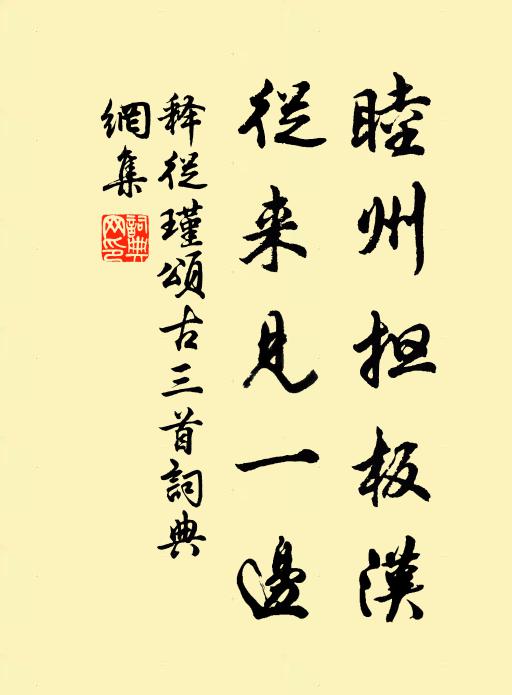 睦州担板漢
從来見一邊
释從瑾頌古三首詞典
網集
詞典網印